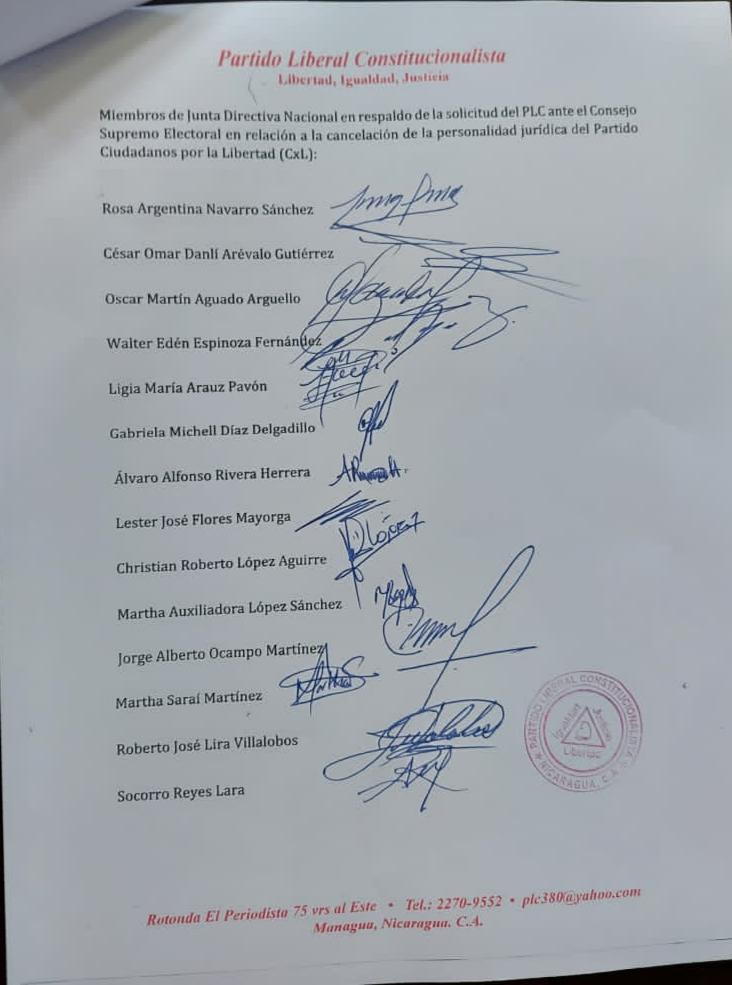 Partido Liberal Constitucionalista
Libertad, Igualdad, Justicia
Miembros de Junta Directiva Nacional en respaldo de la solicitud del PLC ante el Consejo
Supremo Electoral en relación a la cancelación de la personalidad jurídica del Partido
Ciudadanos por la Libertad (CxL):
Rosa Argentina Navarro Sánchez
César Omar Danlí Arévalo Gutiérrez
Oscar Martín Aguado Arguello
Walter Edén Espinoza Fernández
Ligia María Arauz Pavón
Gabriela Michell Díaz Delgadillo
Álvaro Alfonso Rivera Herrera
Lester José Flores Mayorga
Christian Roberto López Aguirre
Martha Auxiliadora López Sánchez
Jorge Alberto Ocampo Martínez
Martha Saraí Martínez
Roberto José Lira Villalobos
Socorro Reyes Lara
PARTIDO LIBERAL CONSTITUCIONALISTA
Igualdad Justicia
Libertad
NICARAGUA, C.A.
Rotonda El Periodista 75 vrs al Este • Tel.: 2270-9552 • plc380@yahoo.com
Managua, Nicaragua. C.A.